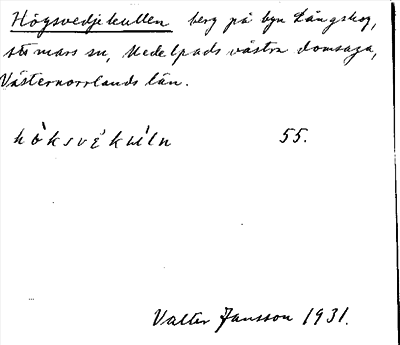 Högsvedjekullen berg på byn Långskog,
stö mars sn, Medelpads västra domsaga,
Västernorrlands län.
hö̀ksvékù́ln 55.
Valter Jansson 1931.